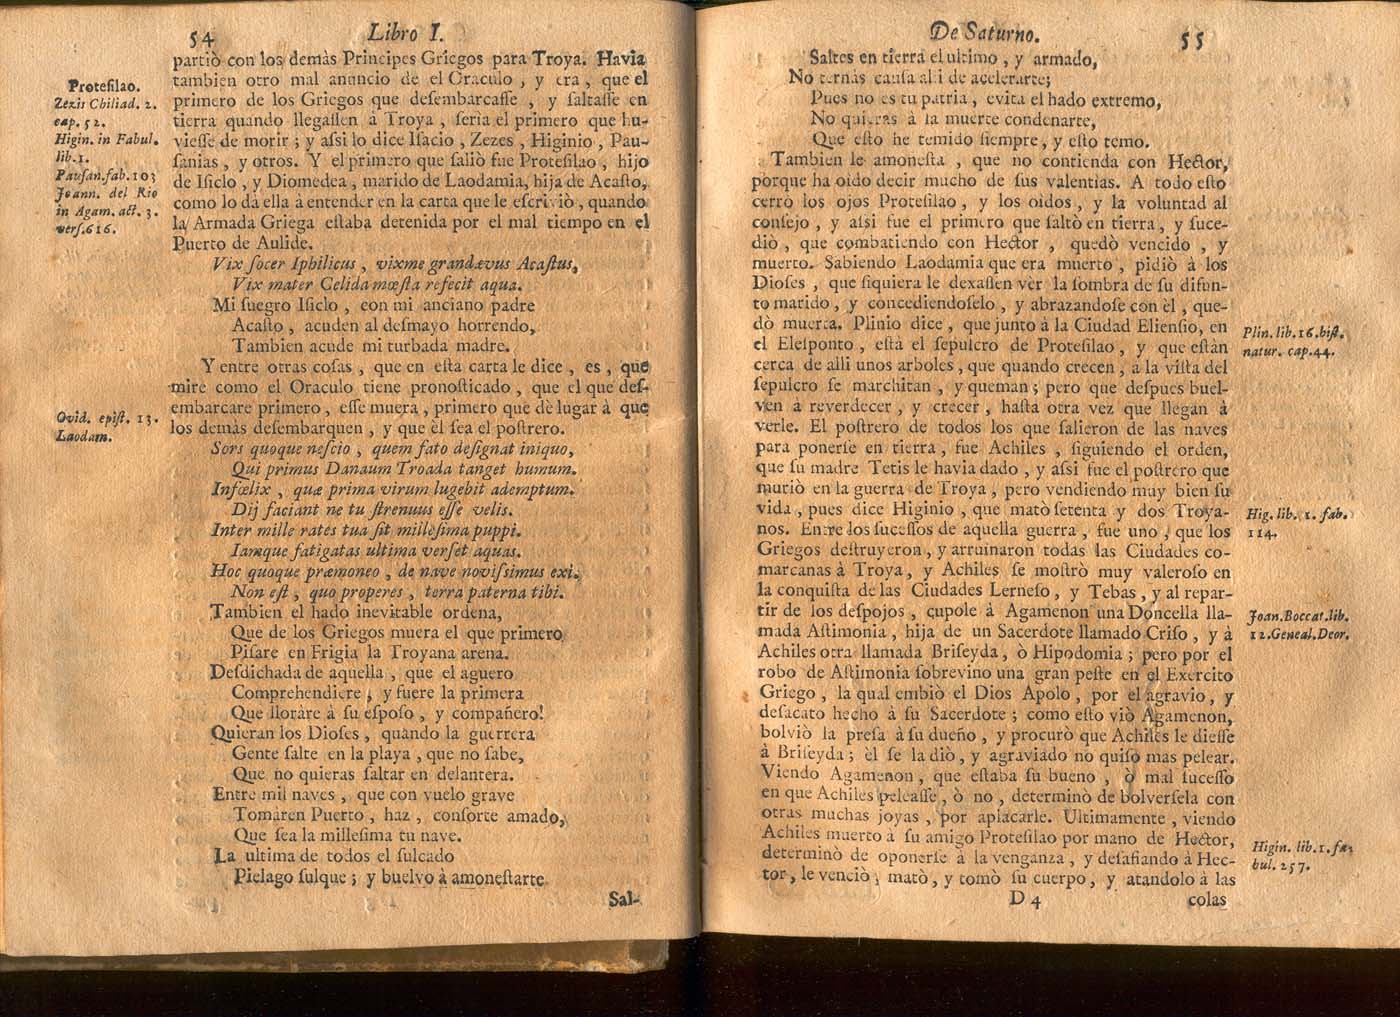 54
Libro I.
partiò con los demàs Principes Griegos para Troya. Havia
tambien otro mal anuncio de el Oraculo, y era, que el
primero de los Griegos que desembarcasse, y saltasse en
tierra quando llegassen à Troya, seria el primero que hu-
viesse de morir; y assi lo dice Isacio, Zezes, Higinio, Pau-
sanias, y otros. Y el primero que saliò fue Protesilao, hijo
de Isiclo, y Diomedea, marido de Laodamia, hija de Acasto,
como lo dà ella à entender en la carta que le escriviò, quando
la Armada Griega estaba detenida por el mal tiempo en el
Puerto de Aulide.
Vix socer Iphilicus, vixme grandævus Acastus,
Vix mater Celida mœsta refecit aqua.
Mi suegro Isiclo, con mi anciano padre
Acasto, acuden al desmayo horrendo,
Tambien acude mi turbada madre.
Y entre otras cosas, que en esta carta le dice, es, que
mire como el Oraculo tiene pronosticado, que el que des-
embarcare primero, esse muera, primero que dè lugar à que
los demàs desembarquen, y que èl sea el postrero.
Sors quoque nescio, quem fato designat iniquo,
Qui primus Danaum Troada tanget humum.
Infœlix, quæ prima virum lugebit ademptum.
Dij faciant ne tu strenuus esse velis.
Inter mille rates tua sit millesima puppi.
Iamque fatigatas ultima verset aquas.
Hoc quoque præmoneo, de nave novissimus exi.
Non est, quo properes, terra paterna tibi.
Tambien el hado inevitable ordena,
Que de los Griegos muera el que primero
Pisare en Frigia la Troyana arena.
Desdichada de aquella, que el aguero
Comprehendiere, y fuere la primera
Que lloràre à su esposo, y compañero!
Quieran los Dioses, quando la guerrera
Gente salte en la playa, que no sabe,
Que no quieras saltar en delantera.
Entre mil naves, que con vuelo grave
Tomaren Puerto, haz, consorte amado,
Que sea la millesima tu nave.
La ultima de todos el sulcado
Pielago sulque; y buelvo à amonestarte
Sal-
Protesilao.
Zezis Chiliad. 2.
cap. 52.
Higin. in Fabul.
lib. 1.
Pausan. fab. 103
Joann. del Rio
in Agam. act. 3.
vers. 616.
Ovid. epist. 13.
Laodam.
De Saturno.
55
Saltes en tierra el ultimo, y armado,
No ternàs causa alli de acelerarte;
Pues no es tu patria, evita el hado extremo,
No quieras à la muerte condenarte,
Que esto he temido siempre, y esto temo.
Tambien le amonesta, que no contienda con Hector,
porque ha oido decir mucho de sus valentias. A todo esto
cerrò los ojos Protesilao, y los oidos, y la voluntad al
consejo, y assi fue el primero que saltò en tierra, y suce-
diò, que combatiendo con Hector, quedò vencido, y
muerto. Sabiendo Laodamia que era muerto, pidiò à los
Dioses, que siquiera le dexassen ver la sombra de su difun-
to marido, y concediendoselo, y abrazandose con èl, que-
dò muerta. Plinio dice, que junto à la Ciudad Eliensio, en
el Elesponto, està el sepulcro de Protesilao, y que estàn
cerca de alli unos arboles, que quando crecen, à la vista del
sepulcro se marchitan, y queman; pero que despues buel-
ven à reverdecer, y crecer, hasta otra vez que llegan à
verle. El postrero de todos los que salieron de las naves
para ponerse en tierra, fue Achiles, siguiendo el orden,
que su madre Tetis le havia dado, y assi fue el postrero que
muriò en la guerra de Troya, pero vendiendo muy bien su
vida, pues dice Higinio, que matò setenta y dos Troya-
nos. Entre los sucessos de aquella guerra, fue uno, que los
Griegos destruyeron, y arruinaron todas las Ciudades co-
marcanas à Troya, y Achiles se mostrò muy valeroso en
la conquista de las Ciudades Lerneso, y Tebas, y al repar-
tir de los despojos, cupole à Agamenon una Doncella lla-
mada Astimonia, hija de un Sacerdote llamado Criso, y à
Achiles otra llamada Briseyda, ò Hipodomia; pero por el
robo de Astimonia sobrevino una gran peste en el Exercito
Griego, la qual embiò el Dios Apolo, por el agravio, y
desacato hecho à su Sacerdote; como esto viò Agamenon,
bolviò la presa à su dueño, y procurò que Achiles le diesse
à Briseyda; èl se la diò, y agraviado no quiso mas pelear.
Viendo Agamenon, que estaba su bueno, ò mal sucesso
en que Achiles peleasse, ò no, determinò de bolversela con
otras muchas joyas, por aplacarle. Ultimamente, viendo
Achiles muerto à su amigo Protesilao por mano de Hector,
determinò de oponerse à la venganza, y desafiando à Hec-
tor, le venciò, matò, y tomò su cuerpo, y atandolo à las
D 4
colas
Plin. lib. 16. hist.
natur. cap. 44.
Hig. lib. 1. fab.
114.
Joan. Boccat. lib.
12. Geneal. Deor.
Higin. lib. 1. fa-
bul. 257.